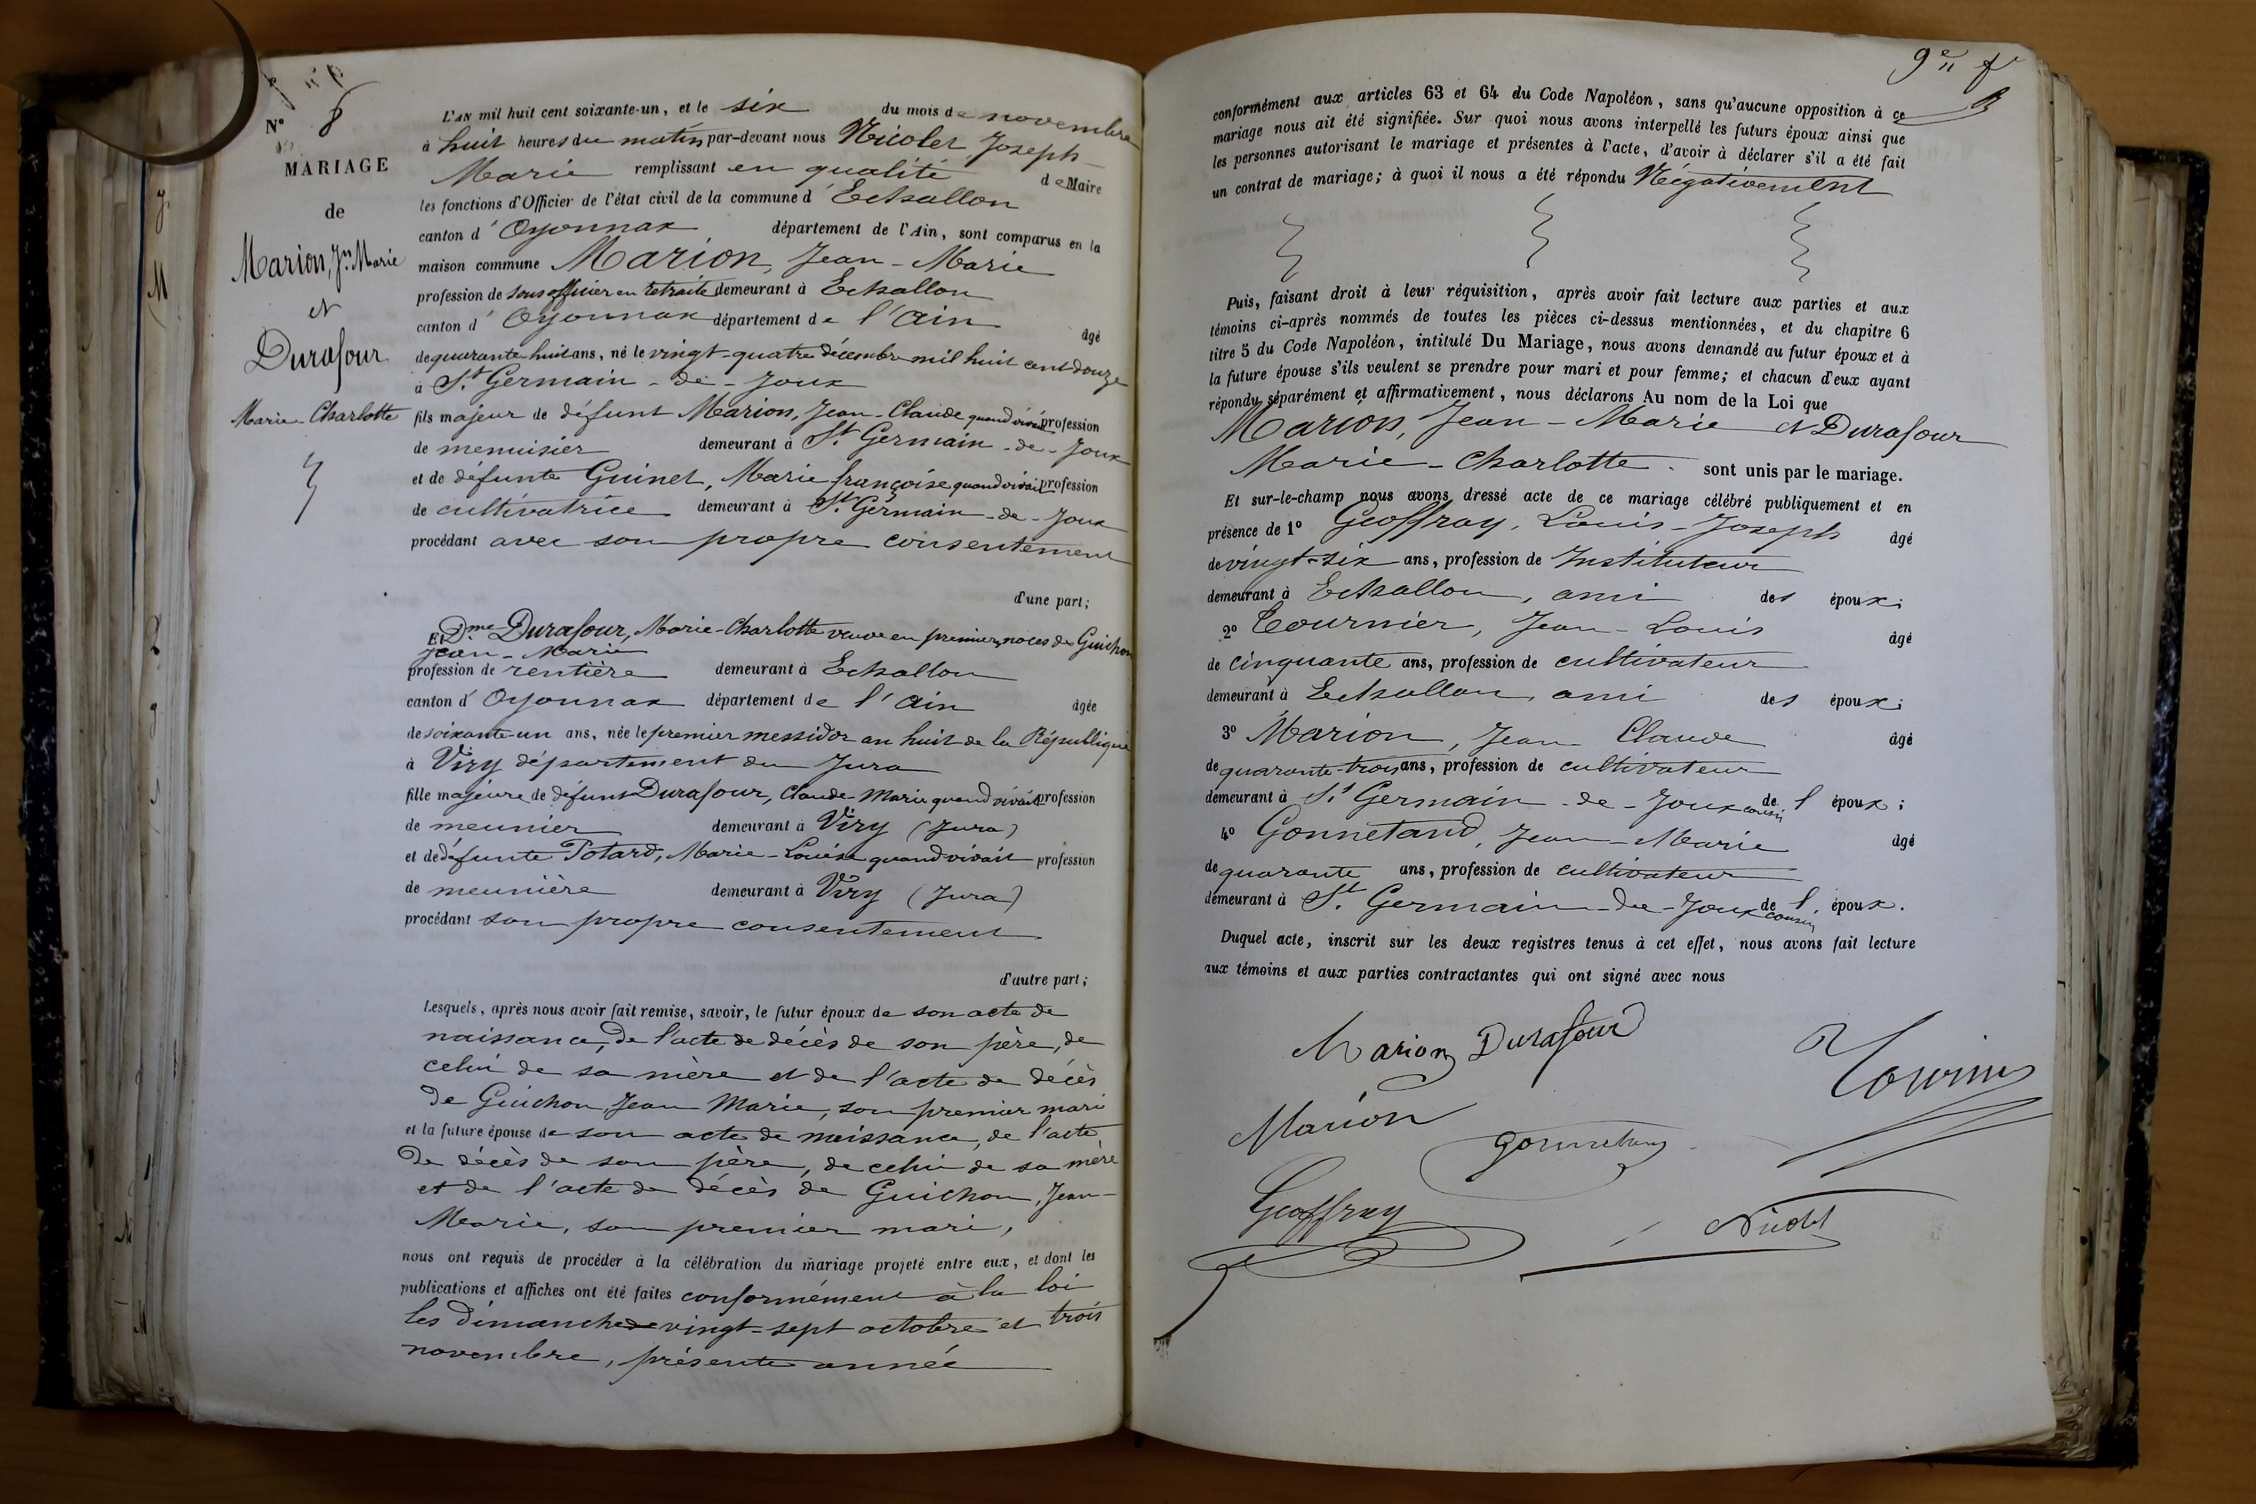 N° 8
MARIAGE
de
Marion, Jn Marie
et
Durafour
Marie-Charlotte
L'AN mil huit cent soixante-un, et le six du mois de novembre
à huit heures du matin par-devant nous Nicolet Joseph-
Marie remplissant en qualité de Maire
les fonctions d'Officier de l'état civil de la commune d'Echallon
canton d'Oyonnax département de l'Ain, sont comparus en la
maison commune Marion, Jean-Marie
profession de sous officier en retraite demeurant à Echallon
canton d'Oyonnax département de l'Ain âgé
de quarante huit ans, né le vingt-quatre décembre mil huit cent douze
à St Germain-de-Joux
fils majeur de défunt Marion, Jean-Claude quand vivait profession
de menuisier demeurant à St Germain-de-Joux
et de défunte Guinet, Marie françoise quand vivait profession
de cultivatrice demeurant à St Germain-de-Joux
procédant avec son propre consentement
d'une part;
Et Dme Durafour, Marie-Charlotte veuve en premières noces de Guichon
Jean-Marie
profession de rentière demeurant à Echallon
canton d'Oyonnax département de l'Ain âgée
de soixante-un ans, née le premier messidor an huit de la République
à Viry département du Jura
fille majeure de défunt Durafour, Claude-Marie quand vivait profession
de meunier demeurant à Viry (Jura)
et de défunte Potard, Marie-Louise quand vivait profession
de meunière demeurant à Viry (Jura)
procédant son propre consentement
d'autre part;
Lesquels, après nous avoir fait remise, savoir, le futur époux de son acte de
naissance, de l'acte de décès de son père, de
celui de sa mère et de l'acte de décès
de Guichon, Jean Marie, son premier mari
et la future épouse de son acte de naissance, de l'acte
de décès de son père, de celui de sa mère
et de l'acte de décès de Guichon, Jean-
Marie, son premier mari,
nous ont requis de procéder à la célébration du mariage projeté entre eux, et dont les
publications et affiches ont été faites conformément à la loi
les dimanche vingt-sept octobre et trois
novembre, présente année
9e
conformément aux articles 63 et 64 du Code Napoléon, sans qu'aucune opposition à ce
mariage nous ait été signifiée. Sur quoi nous avons interpellé les futurs époux ainsi que
les personnes autorisant le mariage et présentes à l'acte, d'avoir à déclarer s'il a été fait
un contrat de mariage; à quoi il nous a été répondu Négativement
Puis, faisant droit à leur réquisition, après avoir fait lecture aux parties et aux
témoins ci-après nommés de toutes les pièces ci-dessus mentionnées, et du chapitre 6
titre 5 du Code Napoléon, intitulé Du Mariage, nous avons demandé au futur époux et à
la future épouse s'ils veulent se prendre pour mari et pour femme; et chacun d'eux ayant
répondu séparément et affirmativement, nous déclarons Au nom de la Loi que
Marion, Jean-Marie et Durafour
Marie-Charlotte. sont unis par le mariage.
Et sur-le-champ nous avons dressé acte de ce mariage célébré publiquement et en
présence de 1° Geoffray, Louis-Joseph âgé
de vingt-six ans, profession de Instituteur
demeurant à Echallon, ami des époux;
2° Tournier, Jean-Louis âgé
de cinquante ans, profession de cultivateur
demeurant à Echallon, ami des époux;
3° Marion, Jean Claude âgé
de quarante-trois ans, profession de cultivateur
demeurant à St Germain-de-Joux cousin de l'époux;
4° Gonnetand, Jean-Marie âgé
de quarante ans, profession de cultivateur
demeurant à St Germain-de-Joux cousin de l'époux.
Duquel acte, inscrit sur les deux registres tenus à cet effet, nous avons fait lecture
aux témoins et aux parties contractantes qui ont signé avec nous
Marion Durafour
Tournier
Marion
Gonnetand
Geoffray
Nicolet